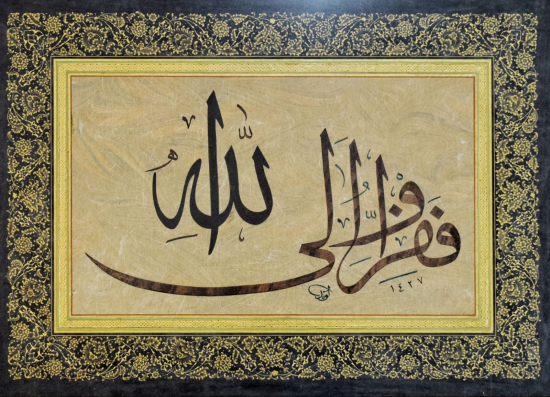 فَفِرُّوا إِلَى اللّٰهِ
١٤٢٧